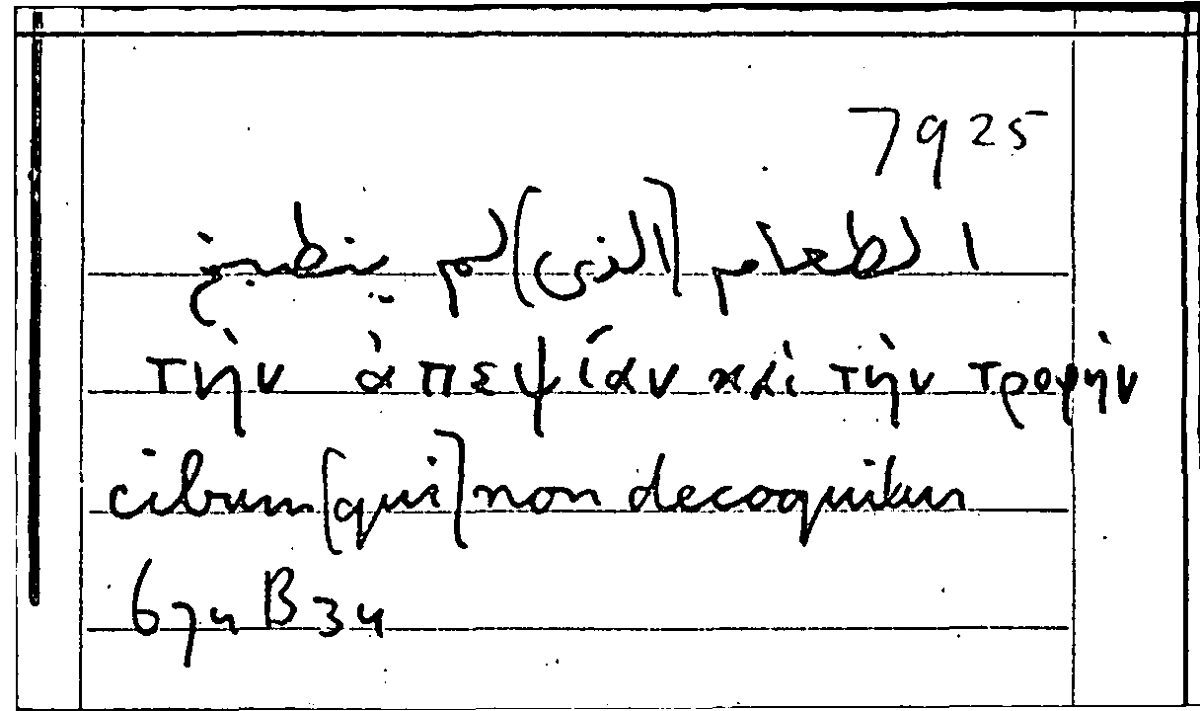 7925
الطعام [الذى] لم ينطبخ
τὴν ἀπεψίαν καὶ τὴν τροφὴν
cibum [qui] non decoquitur
674 B 34